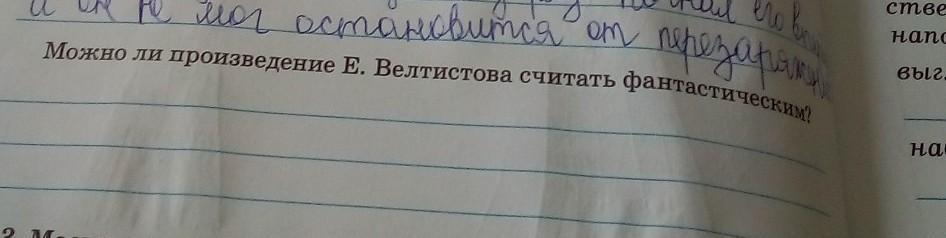 и он не мог остановится от
стве
Можно ли произведение Е. Велтистова считать фантастическим?
напо
выг
на